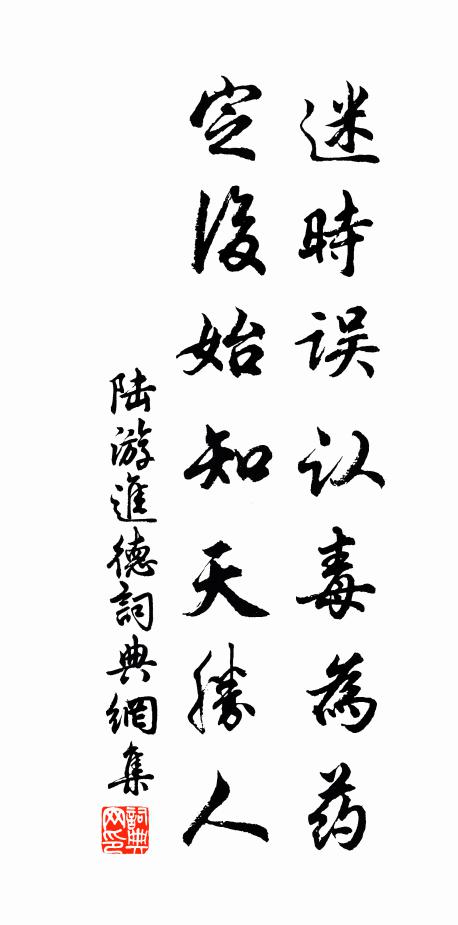 迷時误认毒為药
定後始知天勝人
陆游進德詞典網集
詞典网印